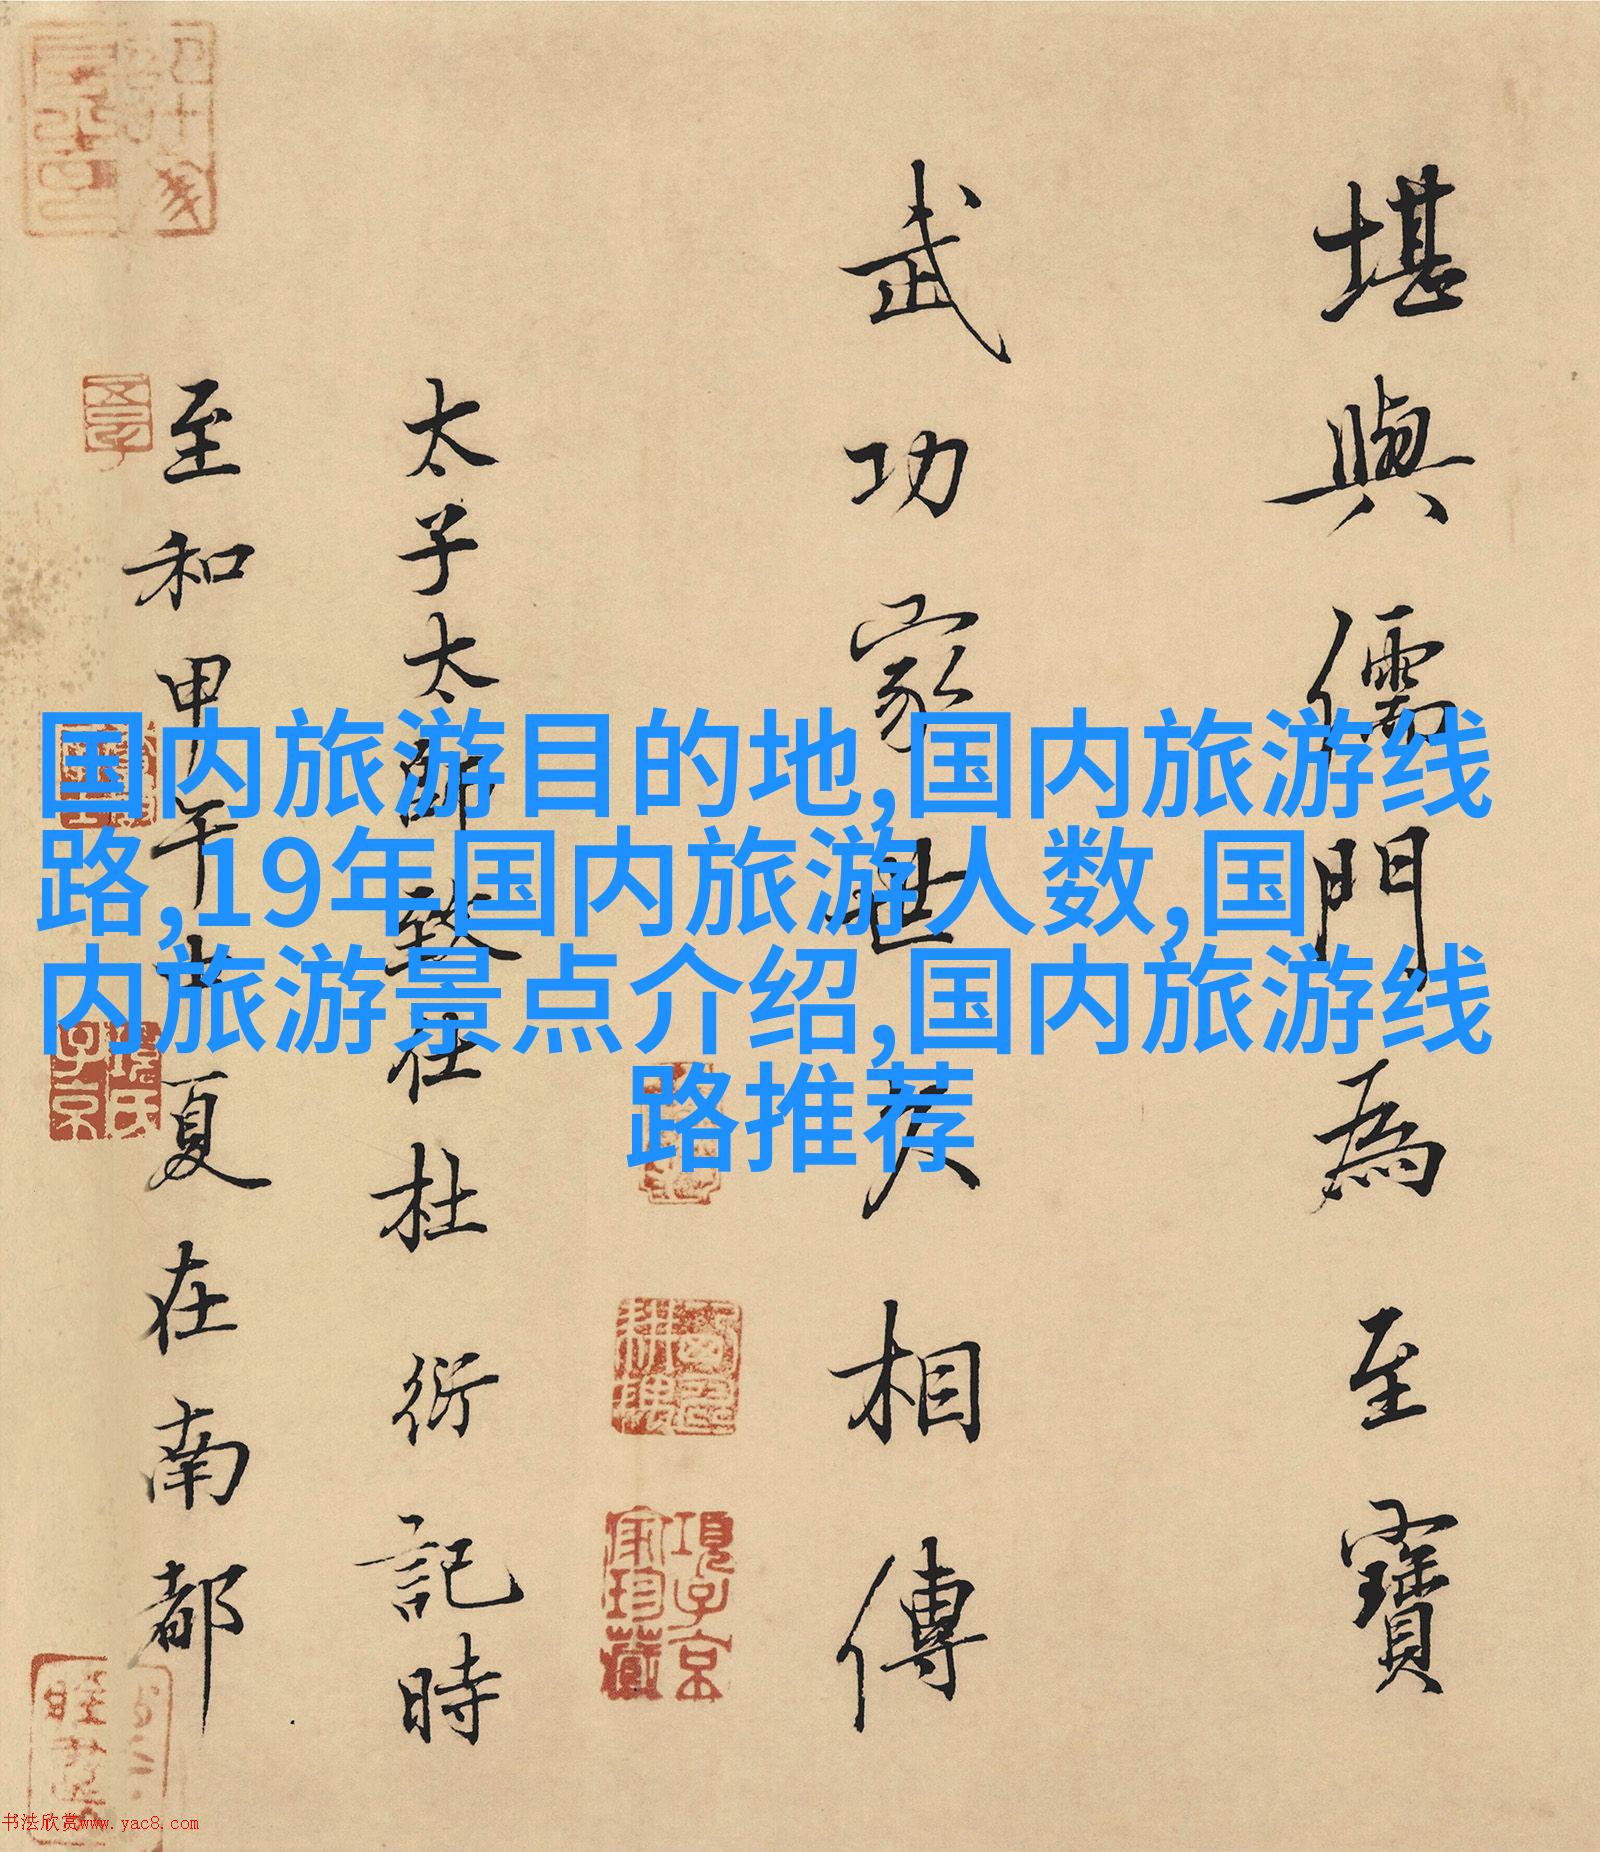 堪與儒門為至寶
武功家世久相傳
太子太師致仕杜衍記時
至和甲午夏在南都
国内旅游目的地,国内旅游线
路,19年国内旅游人数,国
内旅游景点介绍,国内旅游线
路推荐
項子京
家珍藏
項氏
子京
书法欣赏www.yac8.com